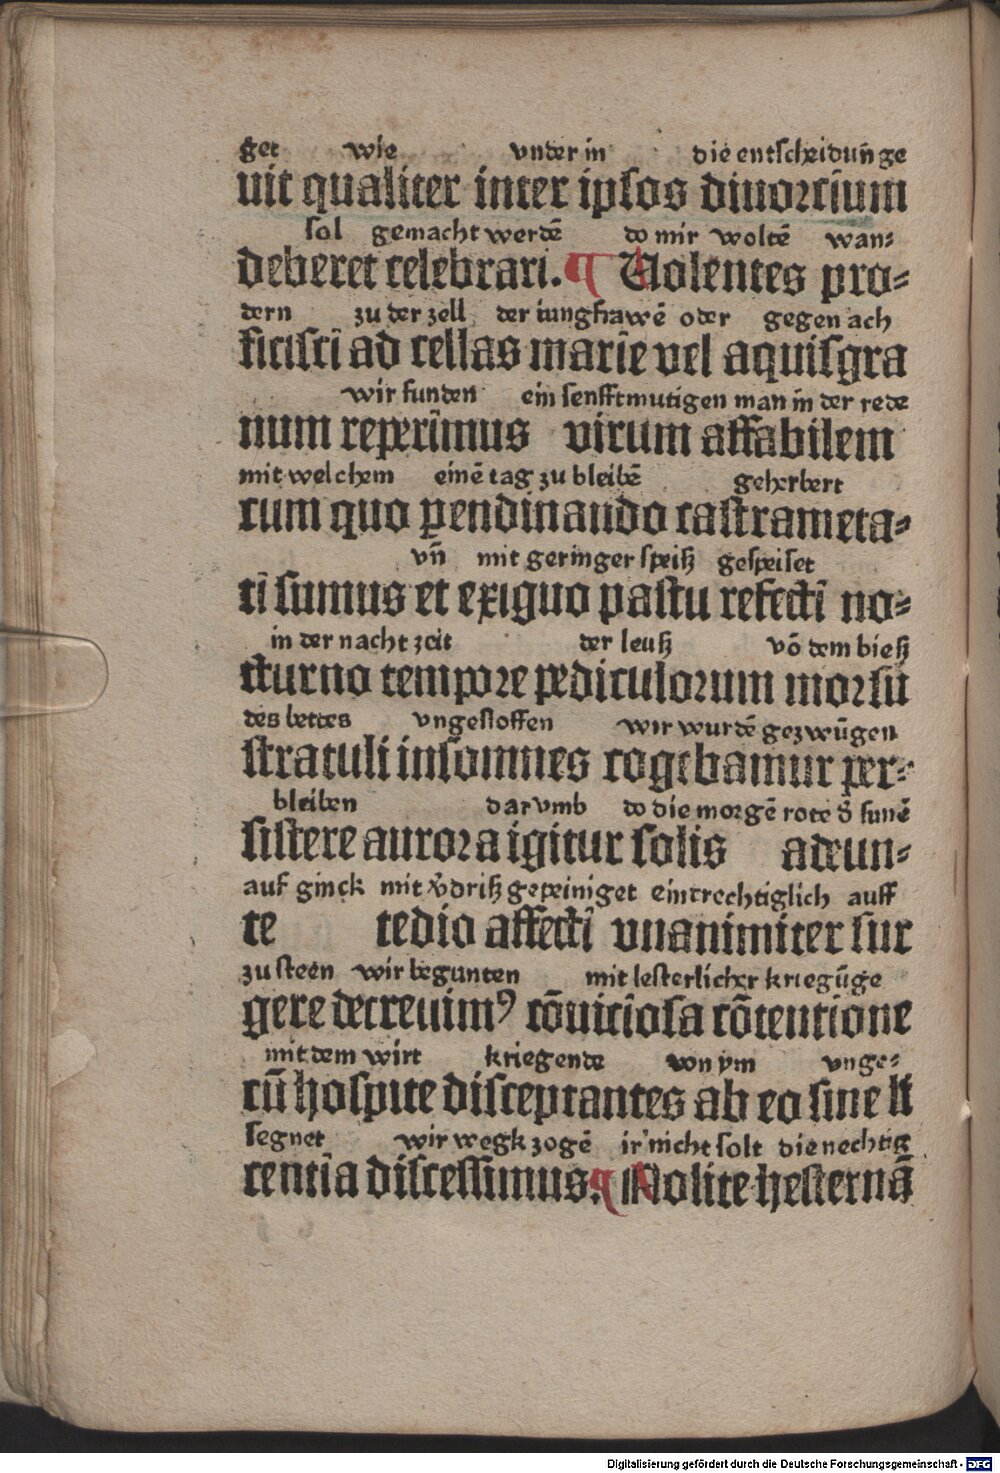 get wie vnder in die entscheidūnge
uit qualiter inter ipsos diuorcium
sol gemacht werdē do mir woltē wan⸗
deberet celebrari. ¶ Uolentes pro⸗
dern zu der zell der iungfrawē oder gegen ach
ficisci ad cellas marie vel aquisgra
wir funden ein senfftmutigen man in der rede
num reperimus virum affabilem
mit welchem einē tag zu bleibē geherbert
cum quo ꝑendinando castrameta⸗
vn̄ mit geringer speiß gespeiset
ti sumus et exiguo pastu refecti no⸗
in der nacht zeit der leuß vō dem bieß
cturno tempore pediculorum morsu
des bettes vngesloffen wir wurdē gezwūgen
stratuli insomnes cogebamur per⸗
bleiben darvmb do die morgē rote d̄ sunē
sistere aurora igitur solis adeun⸗
auf ginck mit v̄driß gepeiniget eintrechtiglich auff
te tedio affecti vnanimiter sur
zu steen wir begunten mit lesterlicher kriegūge
gere decreuimꝰ cōuiciosa cōtentione
mit dem wirt kriegende von ym vnge⸗
cū hospite disceptantes ab eo sine li
segnet wir wegk zogē ir nicht solt die nechtig
centia discessimus. ¶ Nolite hesternā
Digitalisierung gefördert durch die Deutsche Forschungsgemeinschaft - DFG